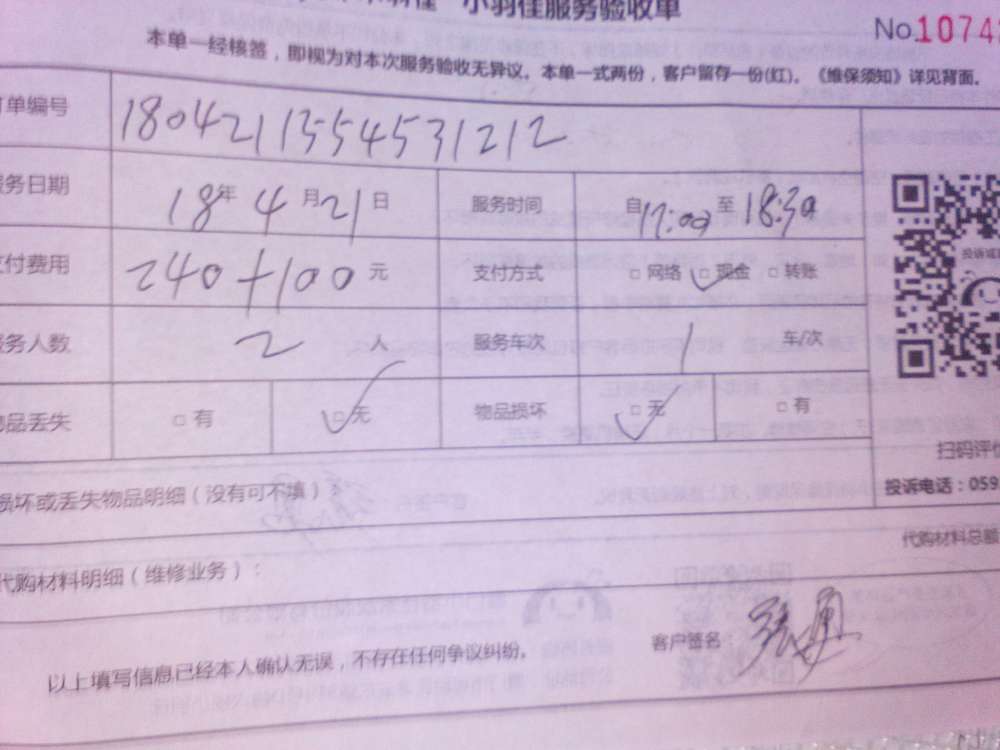 小羽佳服务验收单
No.1074
本单一经核签，即视为对本次服务验收无异议。本单一式两份，客户留存一份(红)。《维保须知》详见背面。
单编号 180421135453 1212
务日期 18年4月21日 服务时间 自17:00至18:30
付费用 240+100元 支付方式 □网络 □现金 □转账
务人数 2人 服务车次 1 车/次
品丢失 □有 □无 物品损坏 □无 □有
投诉
扫码评
损坏或丢失物品明细（没有可不填）：
投诉电话：059
代购材料总额
代购材料明细（维修业务）：
以上填写信息已经本人确认无误，不存在任何争议纠纷。
客户签名：